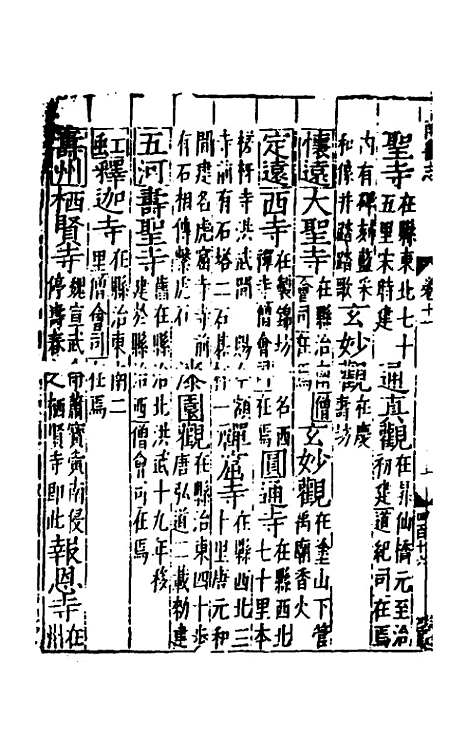 聖寺在縣東北七十五里宋時建 通真觀在昇仙橋元至治初建道紀司在焉
內有碑刻藍采和像并踏踏歌 玄妙觀在慶壽坊
懷遠大聖寺在縣治南僧會司在焉 玄妙觀在塗山下管禹廟香火
定遠西寺在製錦坊名西禪寺僧會司在焉 圓通寺在縣西北七十里本
槎枒寺洪武間賜今額 禪窟寺在縣西北三十里唐元和
寺前有石塔二石碁 一
間建名虎窟寺寺前有石相傳繫虎石 漆園觀在縣治東四十步唐弘道二載勑建
五河壽聖寺舊在縣治北洪武十九年移建於縣治西僧會司在焉
虹縣釋迦寺在縣治東南二里僧會司在焉
壽州栖賢寺魏宣武 蕭寶寅南侵停壽春 栖賢寺即此 報恩寺在州